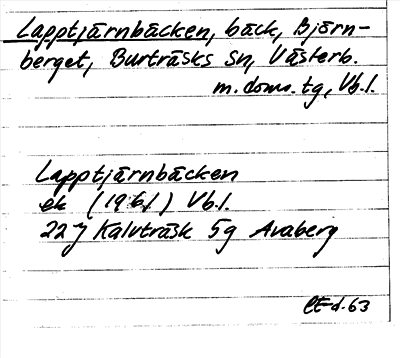 Lapptjärnbäcken, bäck, Björn-
berget, Burträsks sn, Västerb.
m. doms. tg, Vb.l.
Lapptjärnbäcken
ek (1961) Vb.l.
22J Kalvträsk 5g Avaberg
CE-d. 63